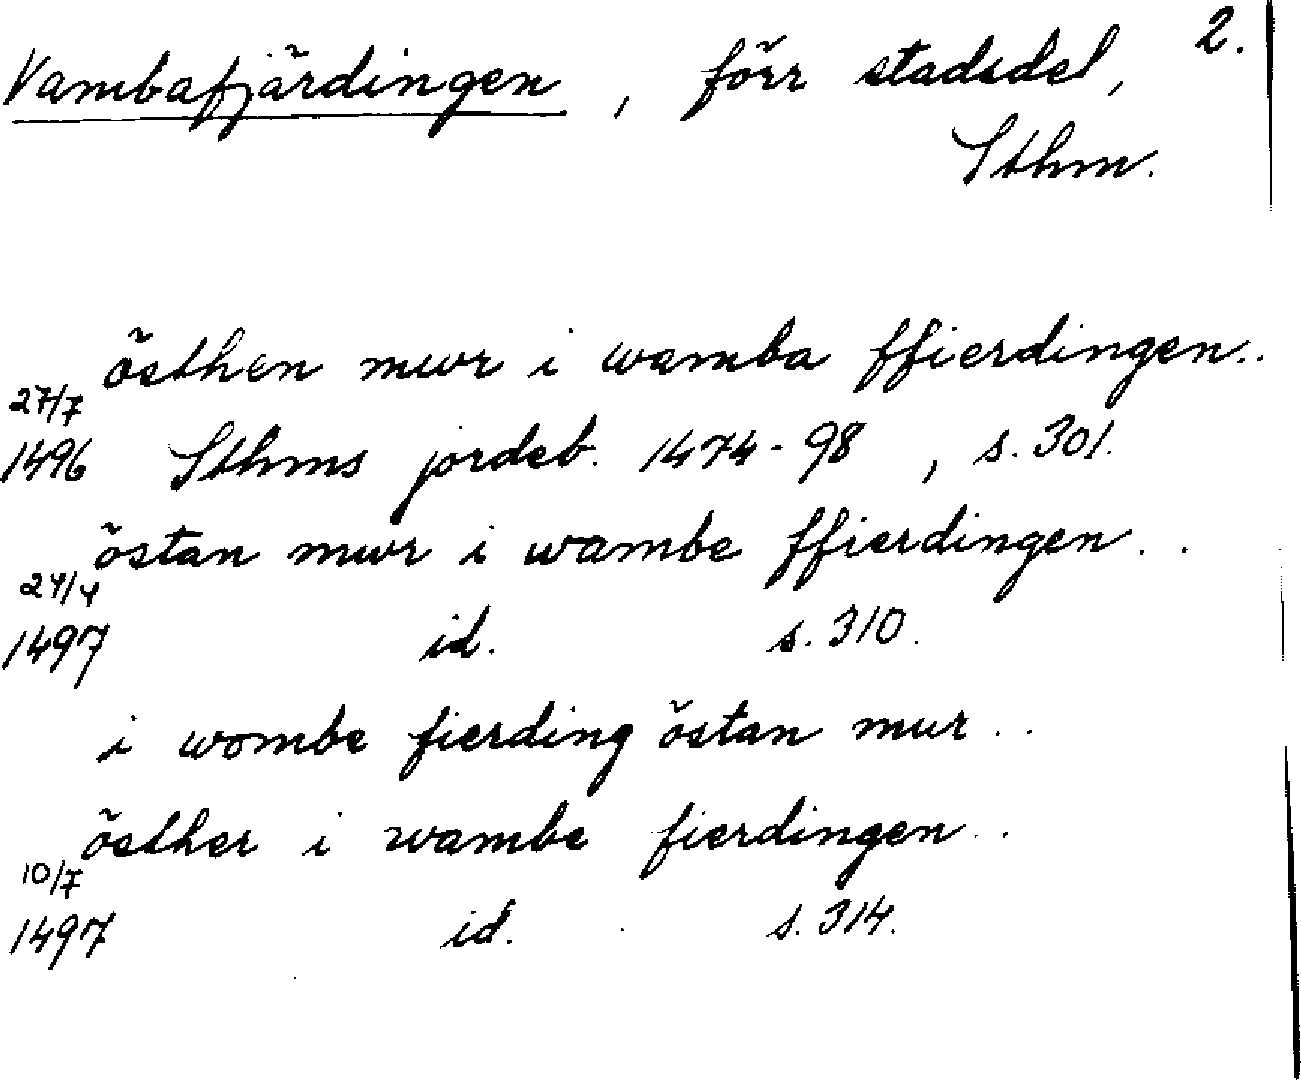 2.
Vambafjärdingen, förr stadsdel,
Sthm.
östhen mwr i wamba ffierdingen..
27/7
1496 Sthms jordeb. 1474-98, s. 301.
östan mwr i wambe ffierdingen..
24/4
1497 id. s. 310.
i wombe fierding östan mur..
östher i wambe fierdingen..
10/7
1497 id. s. 314.